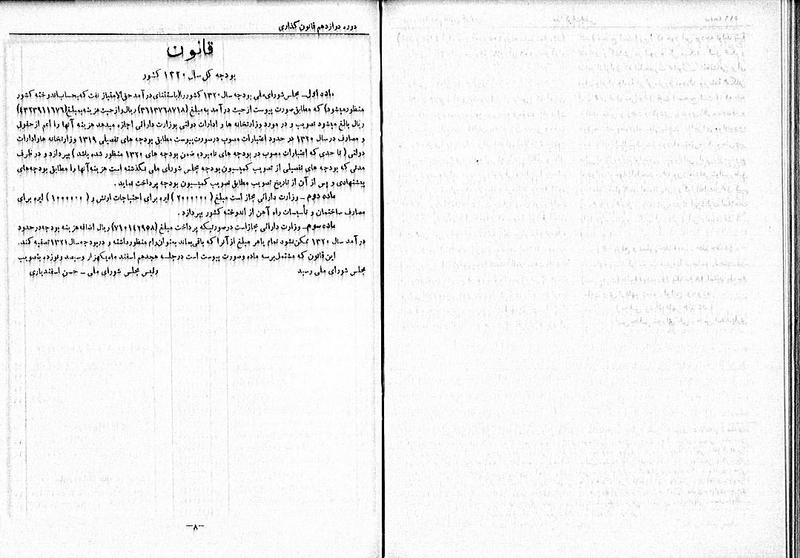 دوره دوازدهم قانون گذاری
قانون
بودجه کل سال ۱۳۲۰ کشور
ماده اول ـ مجلس شورای ملی بودجه سال ۱۳۲۰ کشور را (باستثنای درآمد حق الامتیاز نفت که بحساب اندوخته کشور
منظور میشود) که مطابق صورت پیوست از حیث درآمد به مبلغ (۳٦۱۳۷٦۸۷۱۸) ریال و از حیث هزینه بمبلغ (٤۳۲۳۹۱۱۶۷٦)
ریال بالغ میشود تصویب و در مورد وزارتخانه ها و ادارات دولتی بوزارت دارائی اجازه میدهد هزینه آنها را اعم از حقوق
و مصارف در سال ۱۳۲۰ در حدود اعتبارات مصوب در صورت پیوست مطابق بودجه های تفصیلی ۱۳۱۹ وزارتخانه ها و ادارات
دولتی (تا حدی که اعتبارات مصوب در بودجه های نامبرده ضمن بودجه های ۱۳۲۰ منظور شده باشد) بپردازد و در ظرف
مدتی که بودجه های تفصیلی از تصویب کمیسیون بودجه مجلس شورای ملی نگذشته است هزینه آنها را مطابق بودجه های
پیشنهادی و پس از آن از تاریخ تصویب مطابق تصویب کمیسیون بودجه پرداخت نماید.
ماده دوم ـ وزارت دارائی مجاز است مبلغ (۲۰۰۰۰۰۰) لیره برای احتیاجات ارتش و (۱۰۰۰۰۰۰) لیره برای
مصارف ساختمان و تأسیسات راه آهن از اندوخته کشور بپردازد.
ماده سوم ـ وزارت دارائی مجاز است در صورتیکه پرداخت مبلغ (۷۱۰۱٤۲۹٥۸) ریال اضافه هزینه بودجه در حدود
درآمد سال ۱۳۲۰ ممکن نشود تمام یا هر مبلغ از آنرا که باقی بماند بعنوان وام منظور داشته و در بودجه سال ۱۳۲۱ تصفیه کند.
این قانون که مشتمل بر سه ماده و صورت پیوست است در جلسه هجدهم اسفند ماه یکهزار و سیصد و نوزده بتصویب
مجلس شورای ملی رسید
رئیس مجلس شورای ملی ـ حسن اسفندیاری
ـ۸ـ